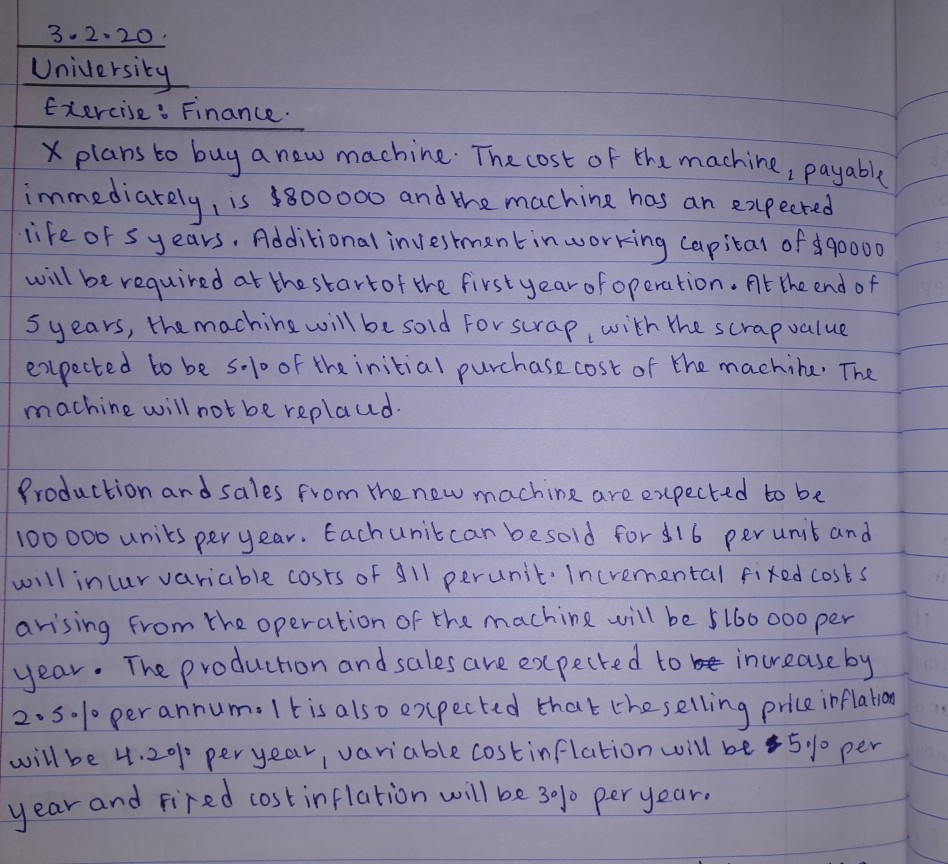 3.2.20.
University
Exercise: Finance.
X plans to buy a new machine. The cost of the machine, payable
immediately, is $800000 and the machine has an expected
life of 5 years. Additional investment in working capital of $90000
will be required at the start of the first year of operation. At the end of
5 years, the machine will be sold for scrap, with the scrap value
expected to be 5% of the initial purchase cost of the machine. The
machine will not be replaced.
Production and sales from the new machine are expected to be
100 000 units per year. Each unit can be sold for $16 per unit and
will incur variable costs of $11 per unit. Incremental fixed costs
arising from the operation of the machine will be $160 000 per
year. The production and sales are expected to be increase by
2.5% per annum. It is also expected that the selling price inflation
will be 4.2% per year, variable cost inflation will be 5% per
year and fixed cost inflation will be 3% per year.